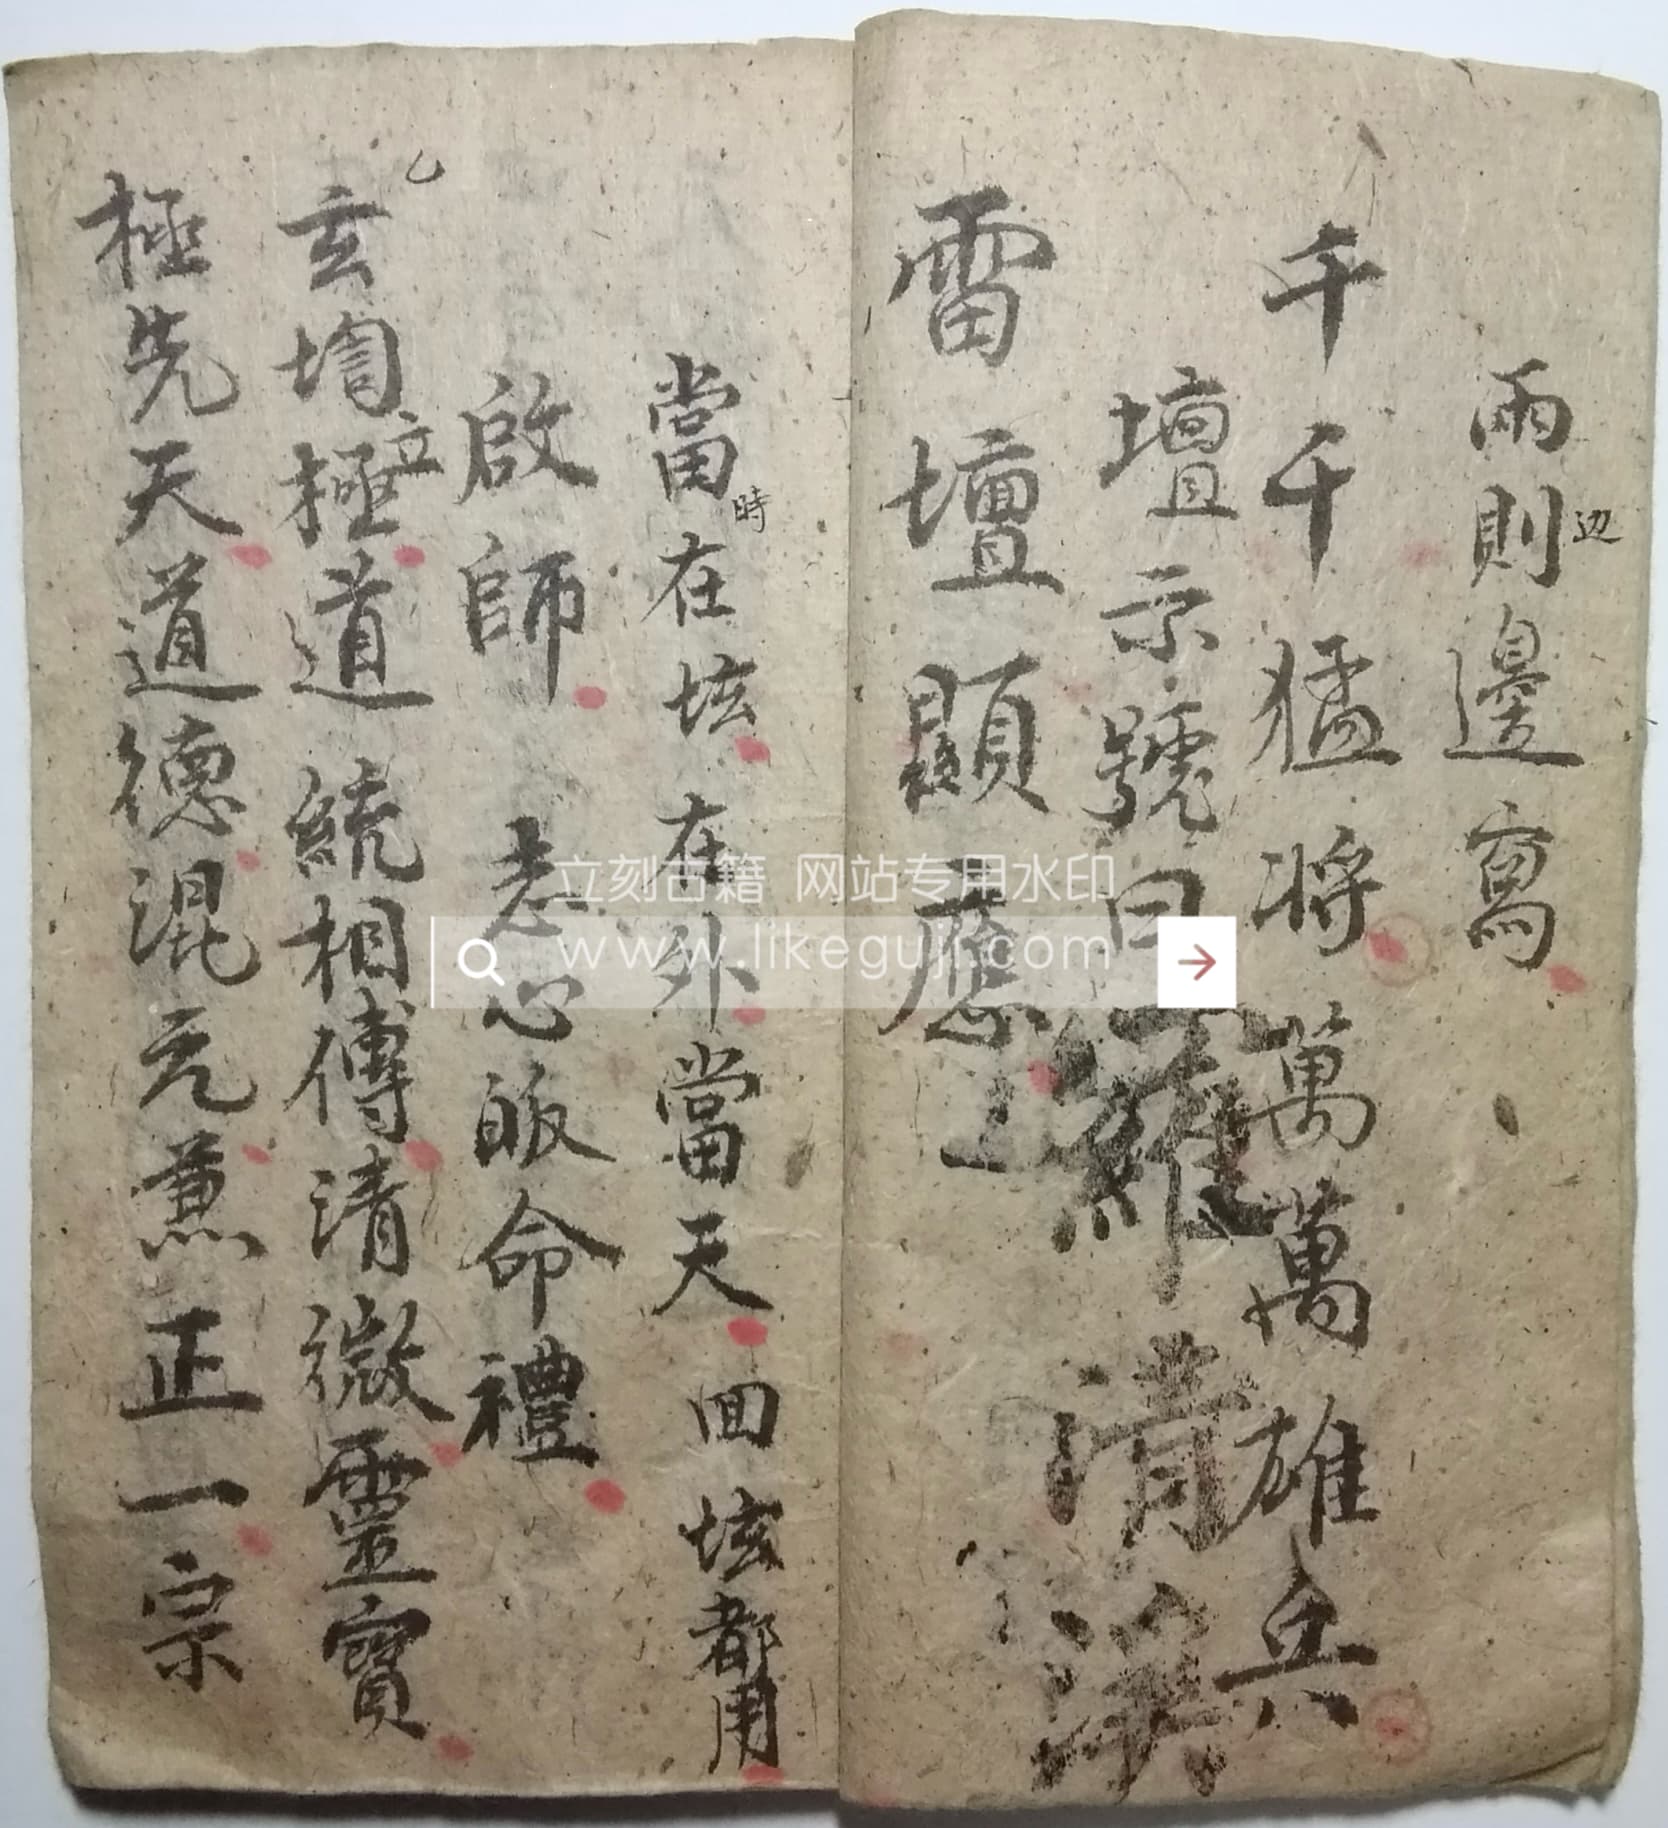 雨則邊寫
辺
千千猛将萬萬雄兵
壇示號曰羅清
雷壇顯應
當在垓在外當天回垓都用
時
啟師 志心皈命禮
玄極道統相傳清微靈寶
立
極先天道德混元薫正一宗
立刻古籍 网站专用水印
www.likeguji.com